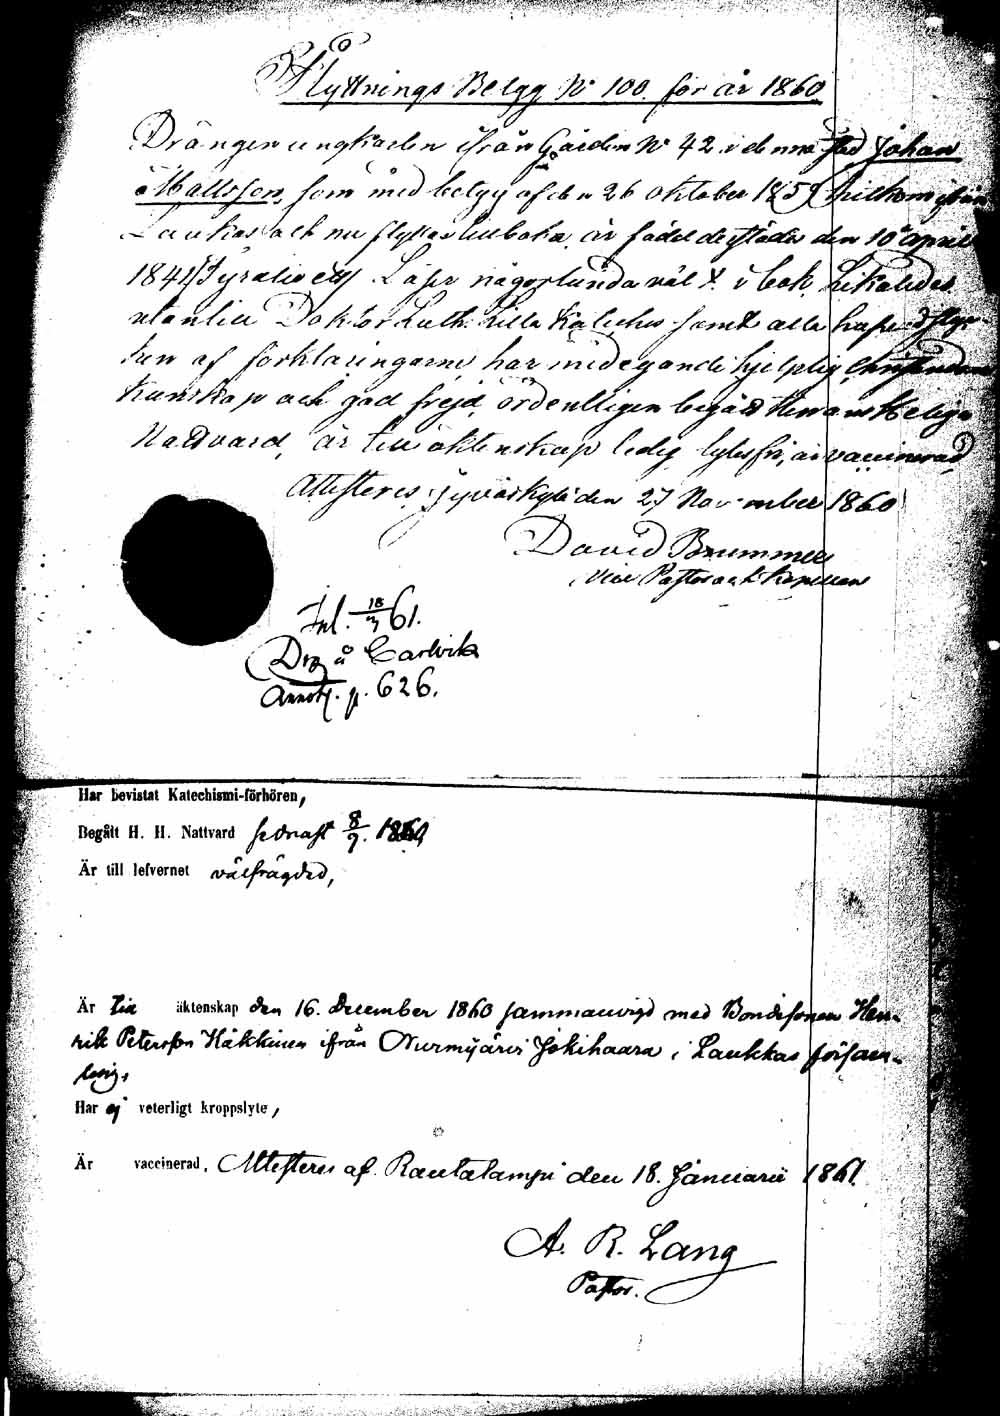 Flyttnings Betyg No 100 för år 1860
Drängen ungkarlen ifrån Gården No 42 i denna stad Johan
Mattsson, som med betyg af den 26 oktober 1859 hitkom ifrån
Laukas och nu flyttar tillbaka, är född derstädes den 10 April
1841 Läser någorlunda väl i bok, Likaledes
utanlill Doktor Luth. Lilla Kateches samt alla hufvudstyc-
ken af förklaringarne, har nidegande hjelplig Christendoms
kunskap och god frejd, ordentligen begått Herrans Heliga
Nattvard, är till äktenskap ledig, lytesfri, är vaccinerad,
Attesteres Jyväskylä den 27 November 1860
David Brummer
Vice Pastor och Kapellan
Inl. 18/3 61.
Drg å Carlvik
Annot. p. 626.
Har bevistat Katechismi-förhören,
Begått H. H. Nattvard sednast 8/7. 1860
Är till lefvernet välfrägdad,
Är till äktenskap den 16. December 1860 sammanvigd med Bondesonen Hen-
rik Petersson Häkkinen ifrån Nurmijärvi Jokihaara i Laukkas försam-
ling,
Har ej veterligt kroppslyte,
Är vaccinerad. Attesteres af. Rautalampi den 18. Januarii 1861.
A. R. Lang
Pastor.